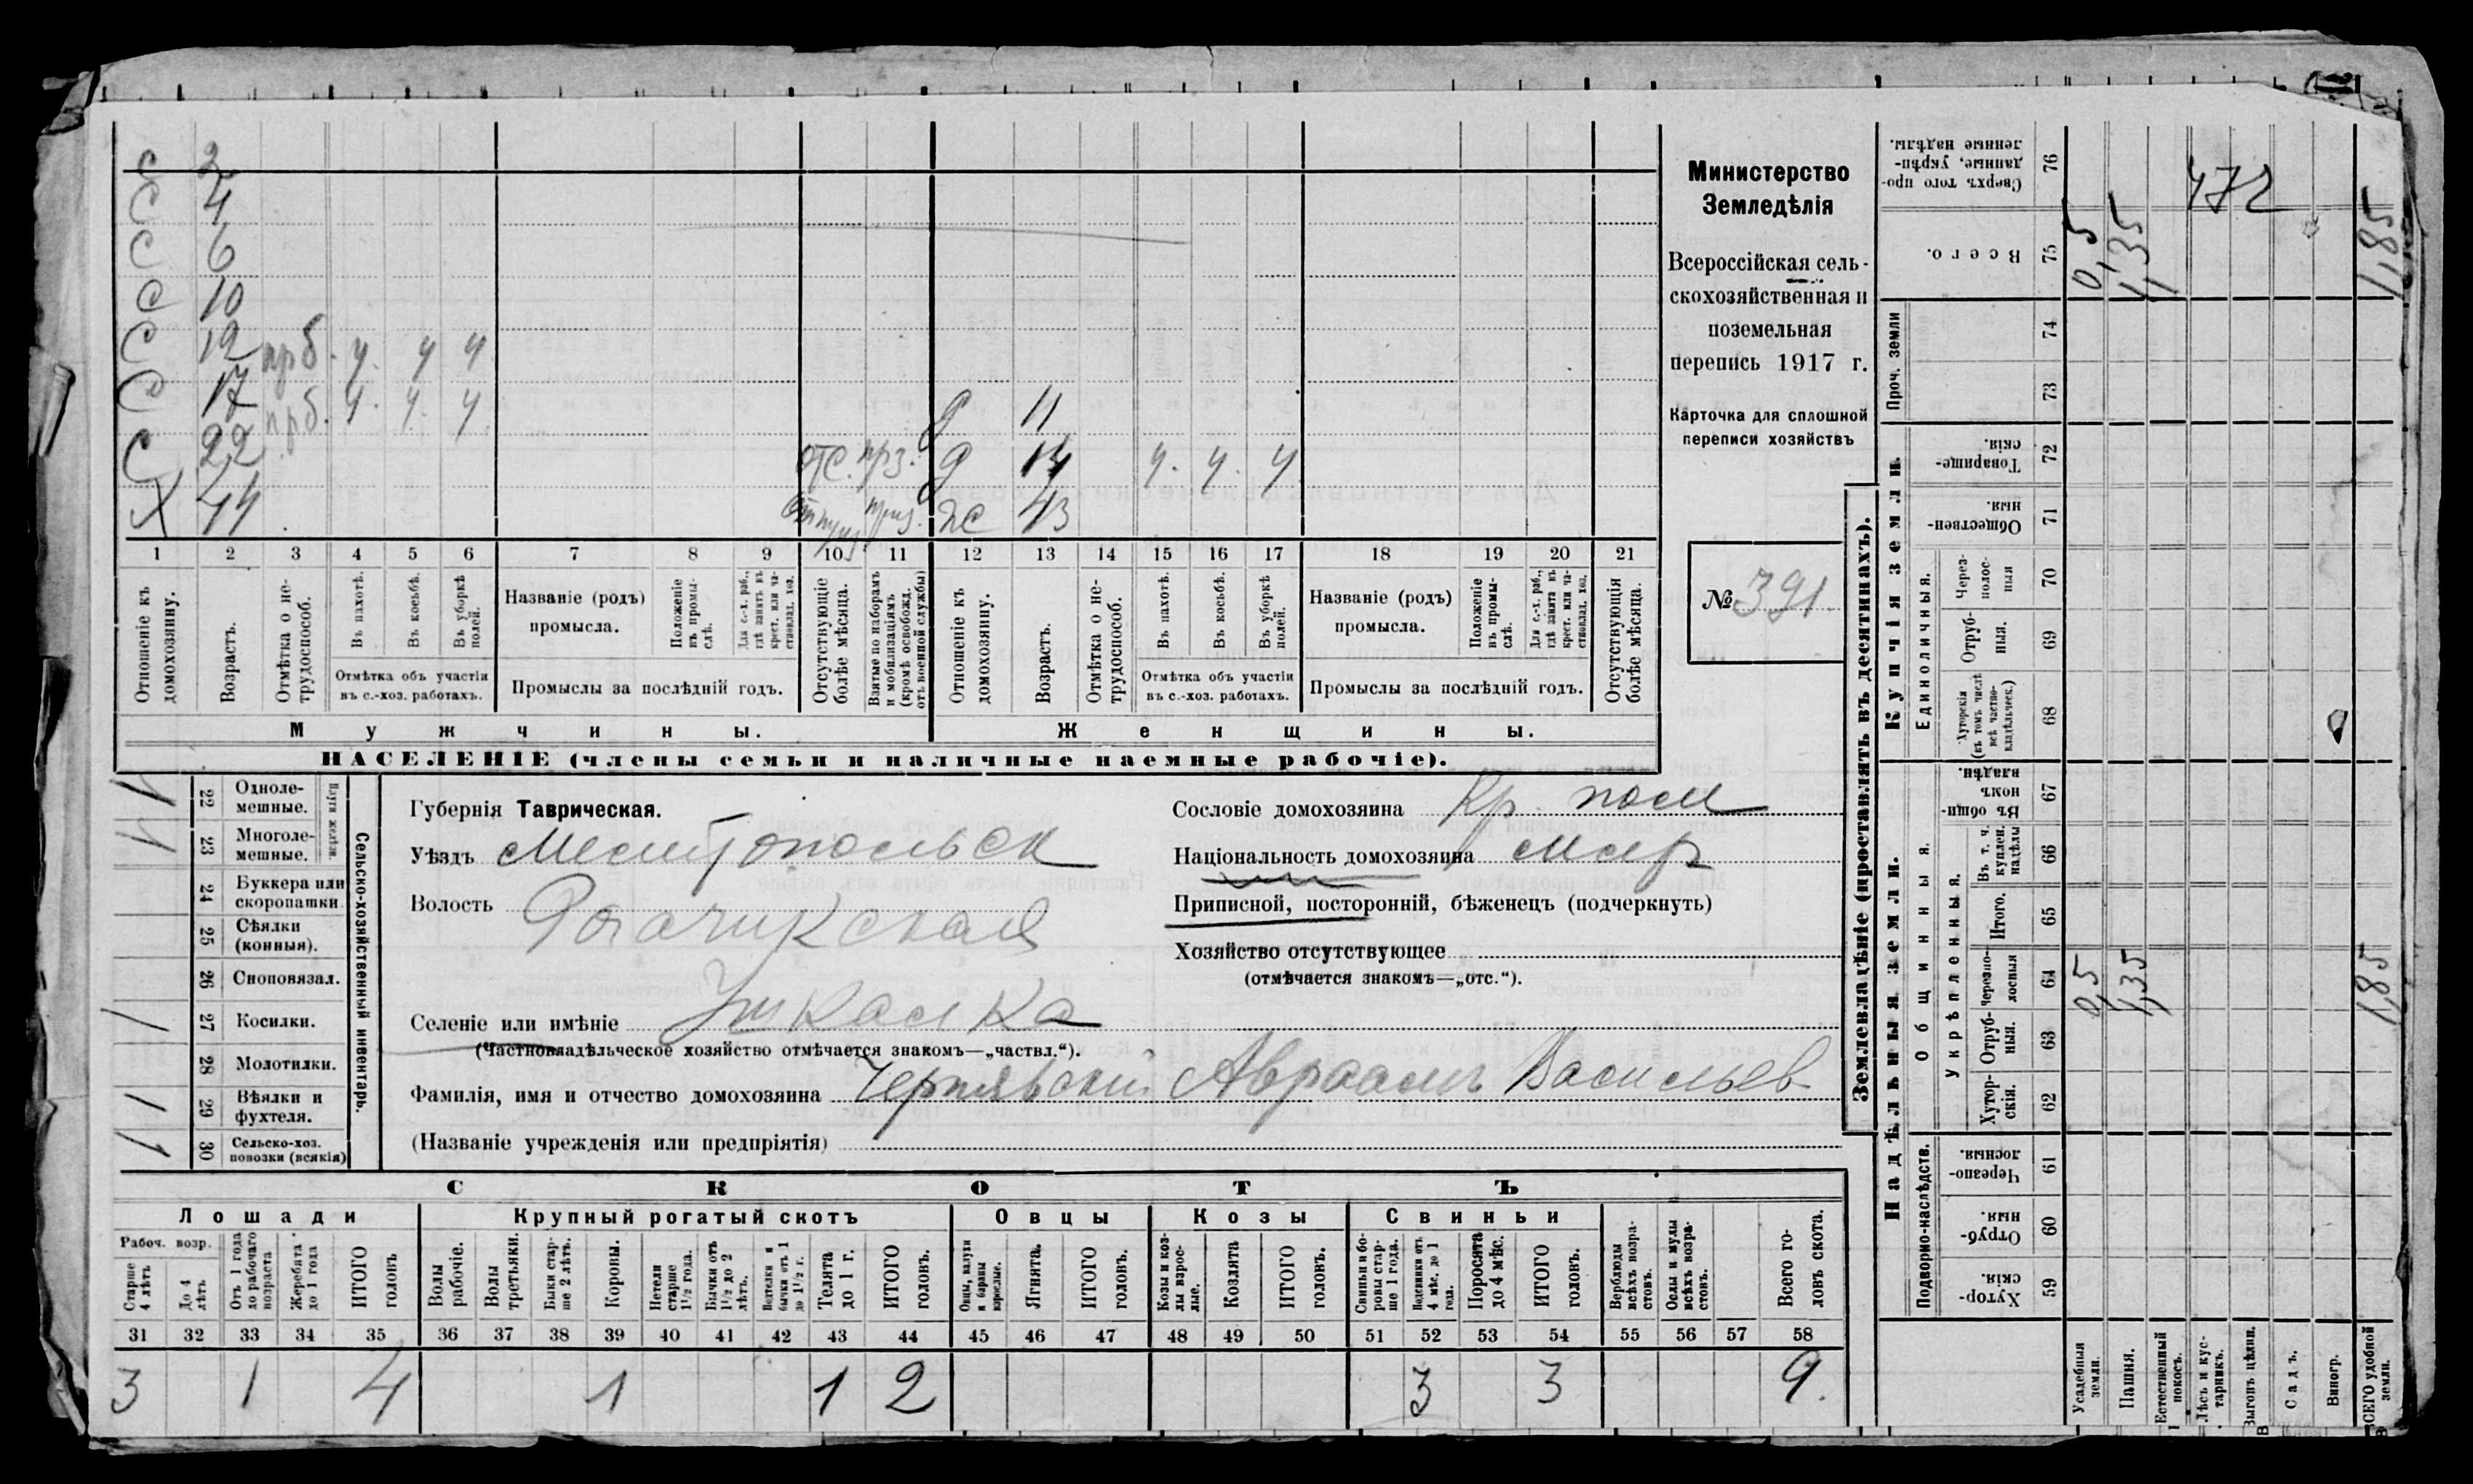 С 2
С 4
С 6
С 10
С 12 прб. ч. ч ч
С 17 прб. ч. ч. ч д 11
С 22 отс. прз. д 14 ч. ч. ч
Х 44 прз. жс 43
1 2 3 4 5 6 7 8 9 10 11 12 13 14 15 16 17 18 19 20 21
Отношеніе къ домохозяину.
Возрастъ.
Отмѣтка о не-трудоспособ.
Въ пахотѣ.
Въ косьбѣ.
Въ уборкѣ полей.
Отмѣтка объ участіи
въ с.-хоз. работахъ.
Названіе (родъ)
промысла.
Положеніе въ промы-слѣ.
Для с.-х. раб., гдѣ занятъ въ крест. или ча-стновлад. хоз.
Промыслы за послѣдній годъ.
Отсутствующіе болѣе мѣсяца.
Взятые по наборамъ и мобилизаціямъ (кромѣ освобожд. отъ военной службы)
Отношеніе къ домохозяину.
Возрастъ.
Отмѣтка о не-трудоспособ.
Въ пахотѣ.
Въ косьбѣ.
Въ уборкѣ полей.
Отмѣтка объ участіи
въ с.-хоз. работахъ.
Названіе (родъ)
промысла.
Положеніе въ промы-слѣ.
Для с.-х. раб., гдѣ занята въ крест. или ча-стновлад. хоз.
Промыслы за послѣдній годъ.
Отсутствующія болѣе мѣсяца.
Мужчины.
Женщины.
НАСЕЛЕНІЕ (члены семьи и наличные наемные рабочіе).
Министерство
Земледѣлія
Всероссійская сель-
скохозяйственная и
поземельная
перепись 1917 г.
Карточка для сплошной
переписи хозяйствъ
№ 391
22 Одноле-мешные. 1
23 Многоле-мешные. 1
Плуги желѣзн.
24 Буккера или скоропашки.
25 Сѣялки (конныя).
26 Сноповязал.
27 Косилки. 1
28 Молотилки.
29 Вѣялки и фухтеля. 1
30 Сельско-хоз. повозки (всякія) 1
Сельско-хозяйственный инвентарь.
Губернія Таврическая.
Уѣздъ Мелитопольск
Волость Рогачикская
Селеніе или имѣніе Ушкалка
(Частновладѣльческое хозяйство отмѣчается знакомъ—„частвл.“).
Фамилія, имя и отчество домохозяина Чернявскій Авраамъ Васильев
(Названіе учрежденія или предпріятія)
Сословіе домохозяина Кр. посел
Національность домохозяина малр
Приписной, посторонній, бѣженецъ (подчеркнуть)
Хозяйство отсутствующее
(отмѣчается знакомъ—„отс.“).
СКОТЪ
Лошади Крупный рогатый скотъ Овцы Козы Свиньи
Рабоч. возр.
Старше 4 лѣтъ
До 4 лѣтъ
Отъ 1 года до рабочаго возраста
Жеребята до 1 года
ИТОГО головъ
Волы рабочіе.
Волы третьяки.
Быки стар-ше 2 лѣтъ.
Коровы.
Нетели старше 1½ года.
Бычки отъ 1½ до 2 лѣтъ.
Подтелки и бычки отъ 1 до 1½ г.
Телята до 1 г.
ИТОГО головъ.
Овцы, валухи и бараны взрослые.
Ягнята.
ИТОГО головъ.
Козы и коз-лы взрос-лые.
Козлята
ИТОГО головъ.
Свиньи и бо-ровы стар-ше 1 года.
Подсвинки отъ 4 мѣс. до 1 года.
Поросята до 4 мѣс.
ИТОГО головъ.
Верблюды всѣхъ возра-стовъ.
Ослы и мулы всѣхъ возра-стовъ.
Всего го-ловъ скота.
31 32 33 34 35 36 37 38 39 40 41 42 43 44 45 46 47 48 49 50 51 52 53 54 55 56 57 58
3 1 4 1 1 2 3 3 9.
Землевладѣніе (проставлять въ десятинахъ).
Надѣльныя земли.
Купчія земли.
Проч. земли
Подворно-наслѣдств.
Общинныя.
Укрѣпленныя.
Единоличныя.
59 Хутор-скія.
60 Отруб-ныя.
61 Черезпо-лосныя.
62 Хутор-скія.
63 Отруб-ныя.
64 Черезпо-лосныя 0,5 1,35 1,85
65 Итого.
66 Въ т. ч. куплен. надѣлы
67 Въ общи-номъ владѣн.
68 Хуторскія (въ томъ числѣ всѣ частно-владѣльческ.)
69 Отруб-ныя.
70 Через-полос-ныя
71 Обществен-ныя.
72 Товарище-скія.
73
74
75 Всего. 0,5 1,35 1,85
76 Сверхъ того про-данные, укрѣп-ленные надѣлы.
472
Усадебныя земли.
Пашня.
Естественный покосъ.
Лѣсъ и кус-тарникъ.
Выгонъ цѣлин.
Садъ.
Виногр.
ВСЕГО удобной земли.